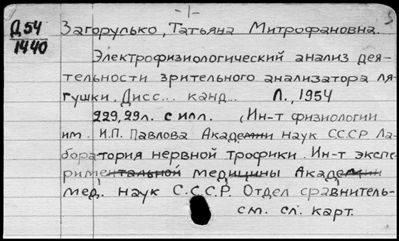 - 1 -
Д 54
1440
Загорулько, Татьяна Митрофановна.
Электрофизиологический анализ дея-
тельности зрительного анализатора ля-
гушки. Дисс... канд... Л., 1954
229,29л. с илл. , Ин-т физиологии
им. И.П. Павлова Академии наук СССР Ла-
боратория нервной трофики. Ин-т экспе-
риментальной медицины Академии
мед. наук С.С.С.Р. Отдел сравнитель-
см. сл. карт.